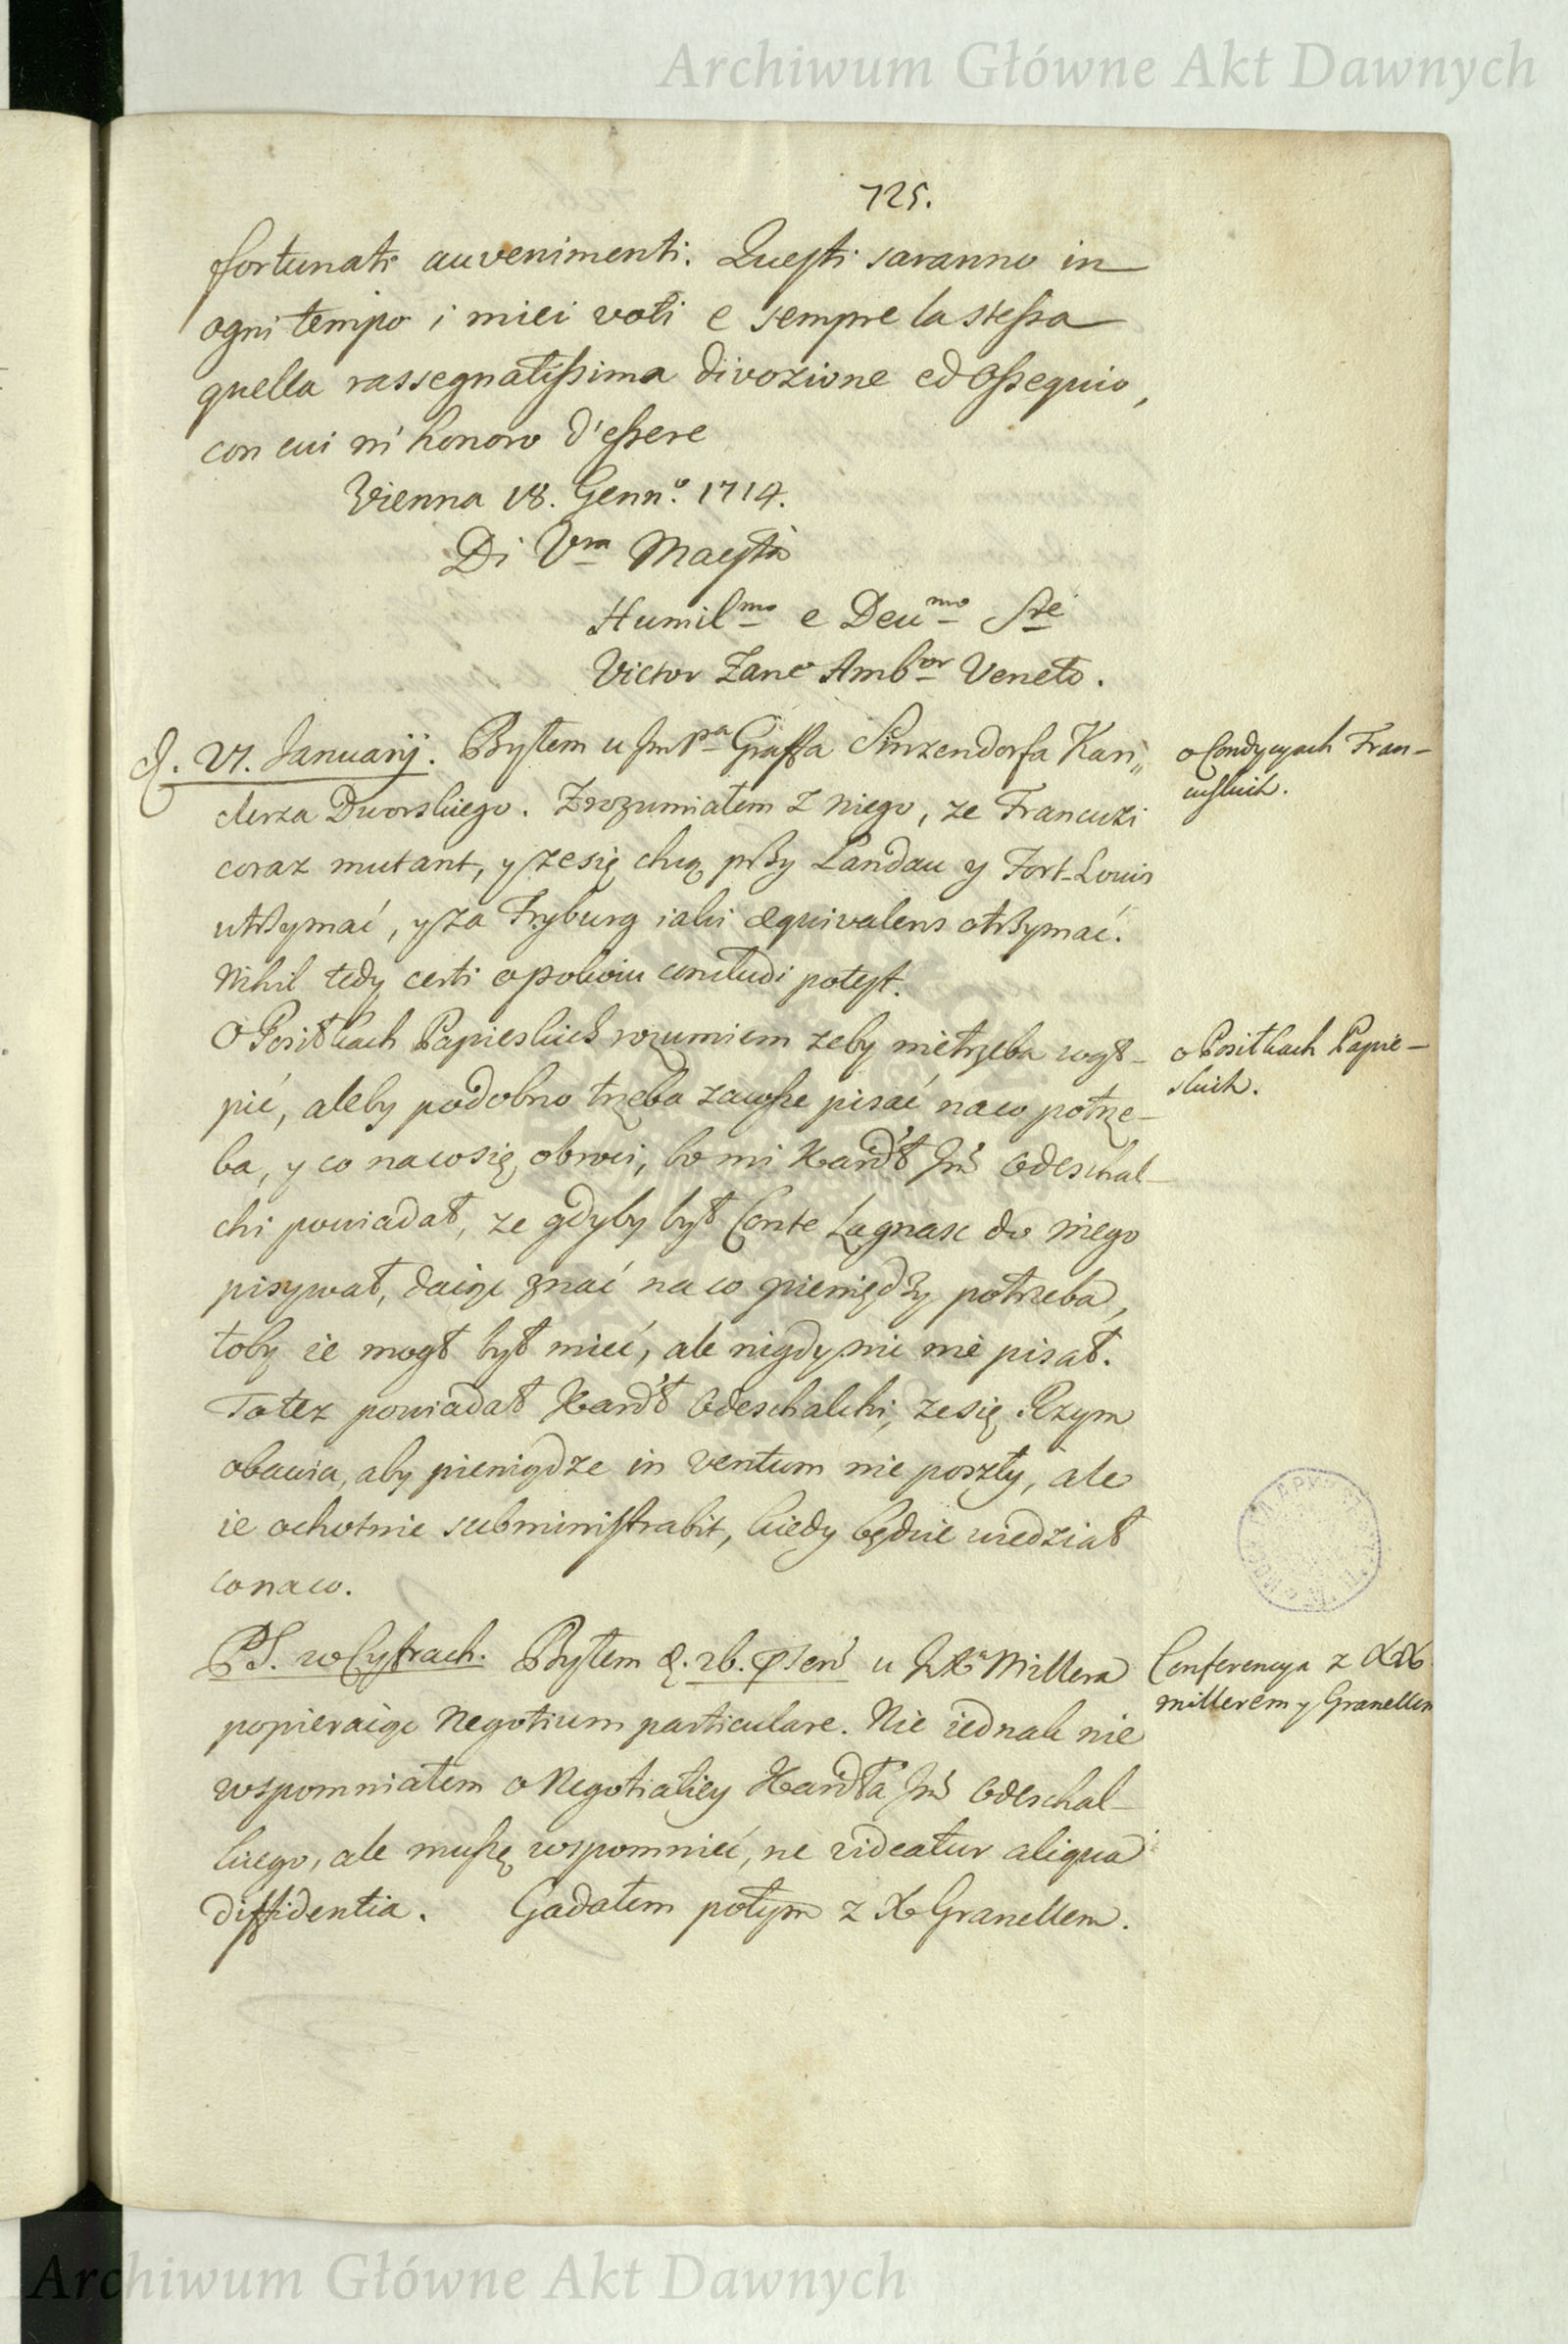 Archiwum Główne Akt Dawnych
725.
fortunati auvenimenti. Questi saranno in
ogni tempo i miei voti e sempre la stessa
quella rassegnatissima divozione ed ossequio,
con cui m' honoro d'essere
Vienna 18. Genn.º 1714.
Di Vra Maestà
Humilmo e Deumo Sre
Victor Zane Ambor Veneto.
d. 21. Januarij. Byłem u JmPa Graffa Sinzendorfa Kan„
o Condycyach Fran–
cuskich.
clerza Dworskiego. Zrozumiałem z niego, ze Francuzi
coraz mutant, y ze się chcą przy Landau y Fort-Louis
utrzymać, y za Fryburg iaki æquivalens otrzymać.
Nihil tedy certi o pokoiu concludi potest.
O Posiłkach Papieskich rozumiem zeby nietrzeba wąt–
o Posiłkach Papie–
skich.
pić, aleby podobno trzeba zawsze pisać na co potrze–
ba, y co na co się obroci, bo mi Kardł Jmć Odeschal–
chi powiadał, ze gdyby był Conte Lagnasc do niego
pisywał, daiąc znać na co pieniędzy potrzeba,
toby ie mogł był mieć, ale nigdy mi nie pisał.
To tez powiadał Kardł Odeschalchi, ze się Rzym
obawia, aby pieniądze in ventum nie poszły, ale
ie ochotnie subministrabit, kiedy będzie wiedział
co na co.
PS. w Cyfrach. Byłem d. 26. psen̄ u JXa Millera
Conferencya z XX
Millerem y Granellem
popieraiąc Negotium particulare. Nie iednak nie
wspomniałem o Negotiatiey Kardła Jmć Odeschal–
kiego, ale muszę wspomnieć, ne videatur aliqua
diffidentia. Gadałem potym z X Granellem.
Archiwum Główne Akt Dawnych